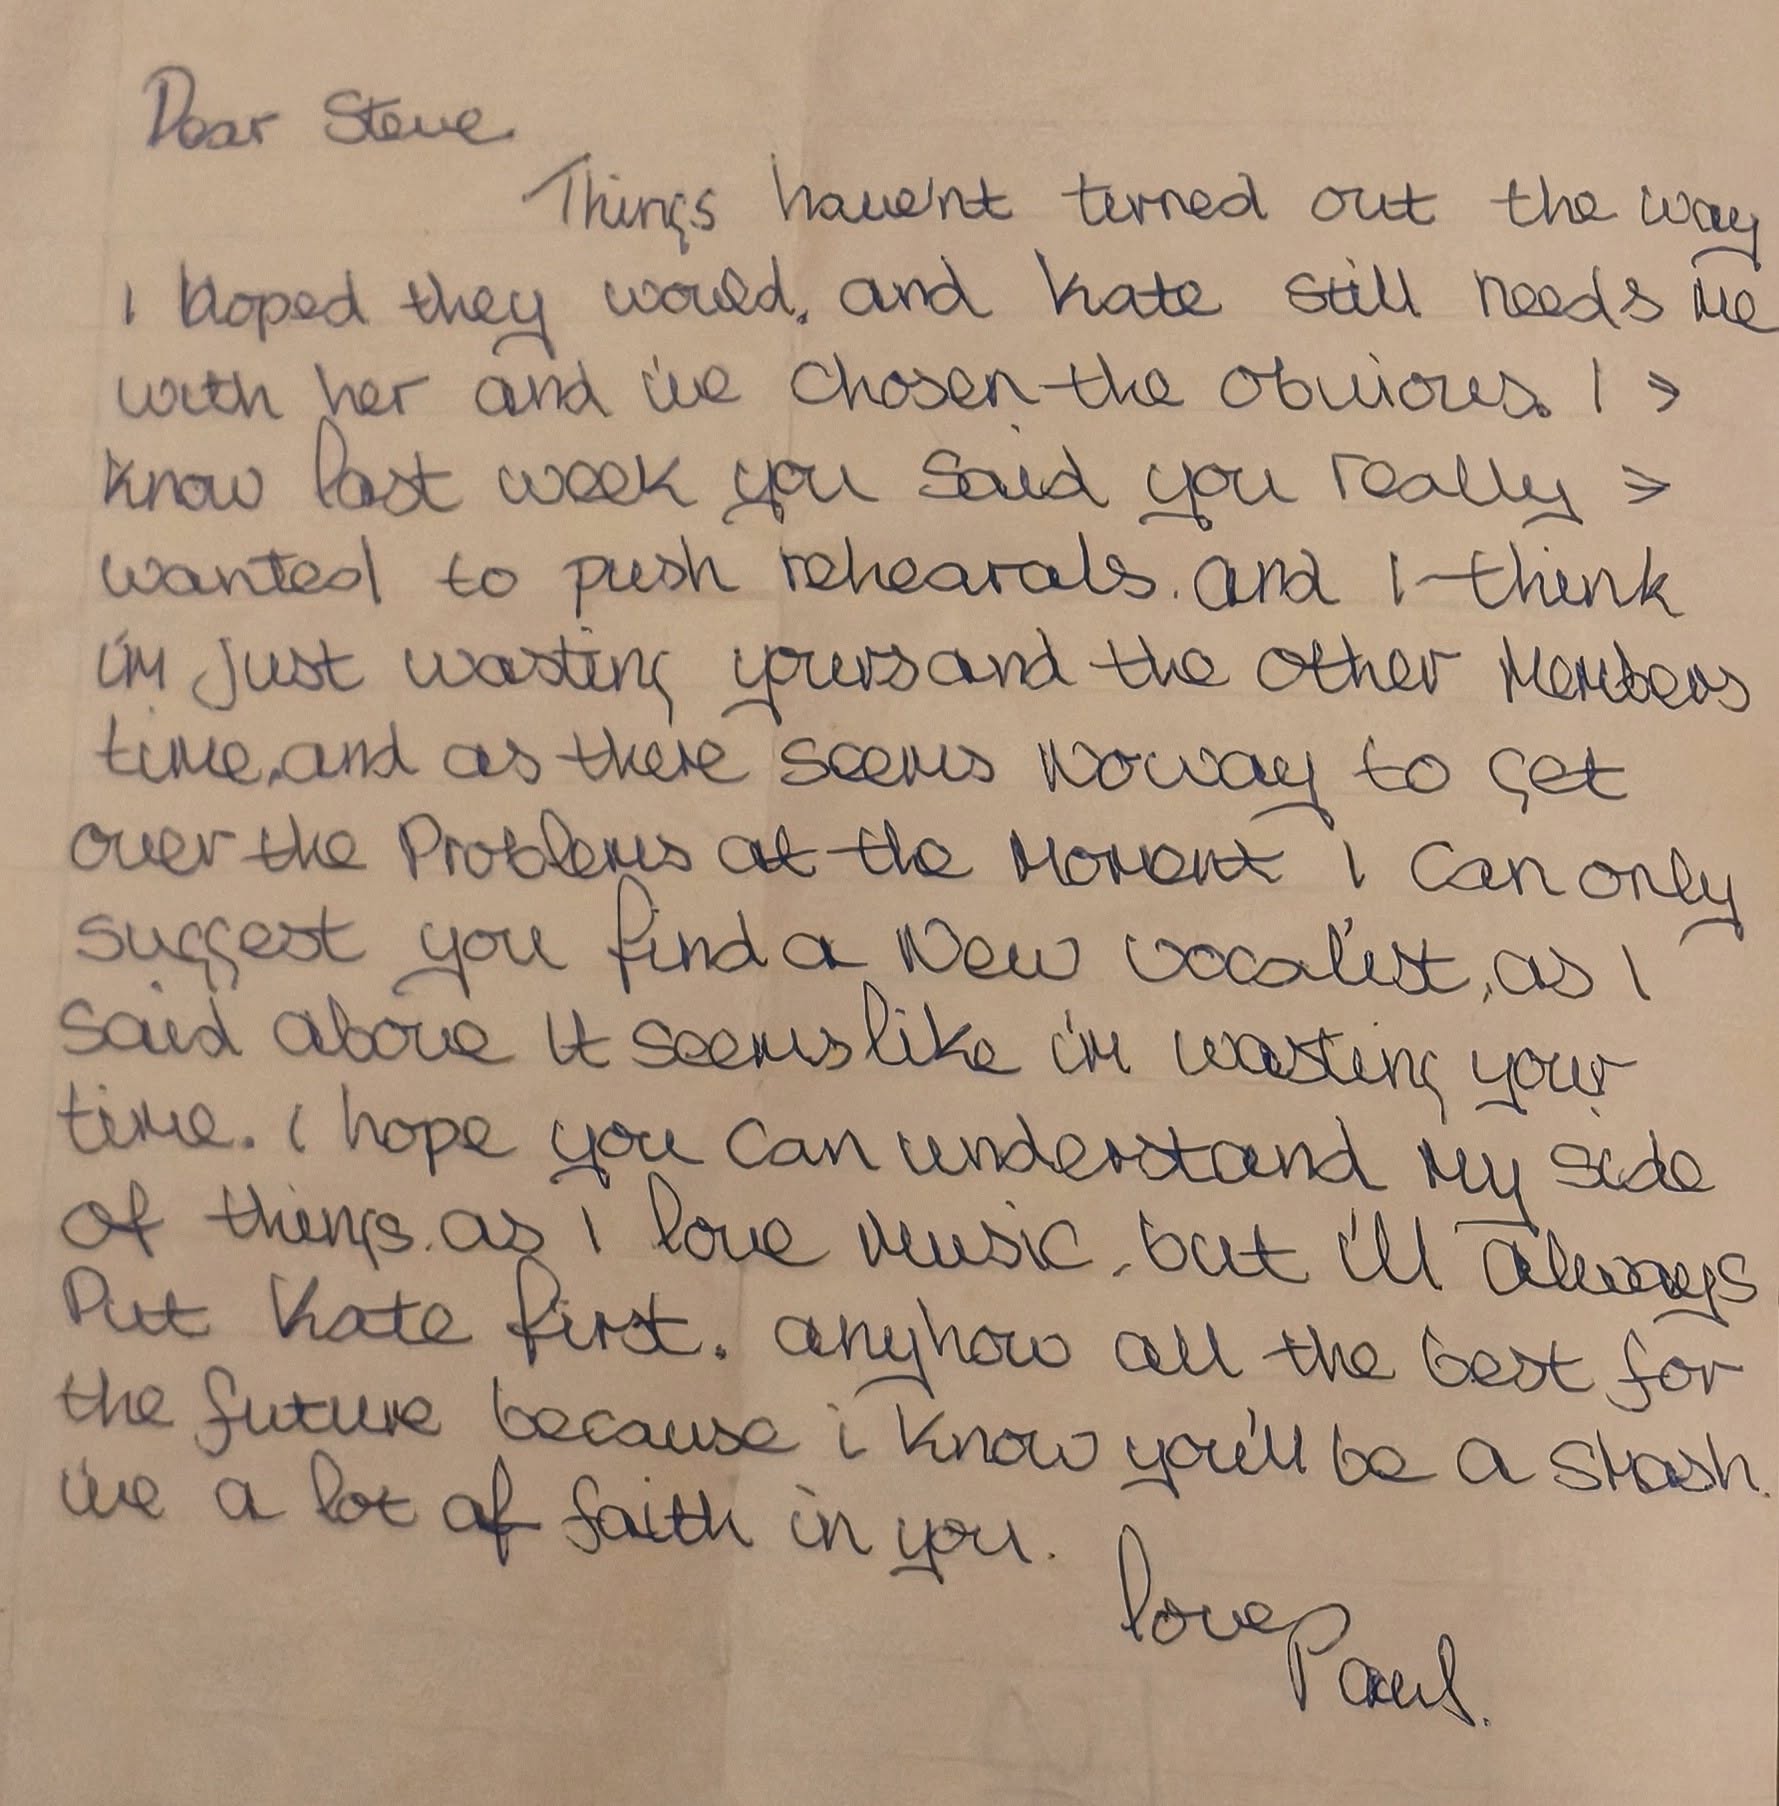 Dear Steve
Things have'nt turned out the way
I hoped they would, and Kate still needs me
with her and i've chosen the obvious. I >
know last week you said you really >
wanted to push rehearals. and I think
i'm just wasting yours and the other Members
time, and as there seems Noway to get
over the Problems at the Moment I can only
suggest you find a New vocalist, as I
said above It seems like i'm wasting your
time. i hope you can understand my side
of things. as I love Music, but i'll always
Put Kate first. anyhow all the best for
the future because i know you'll be a smash.
i've a lot of faith in you.
love
Paul.